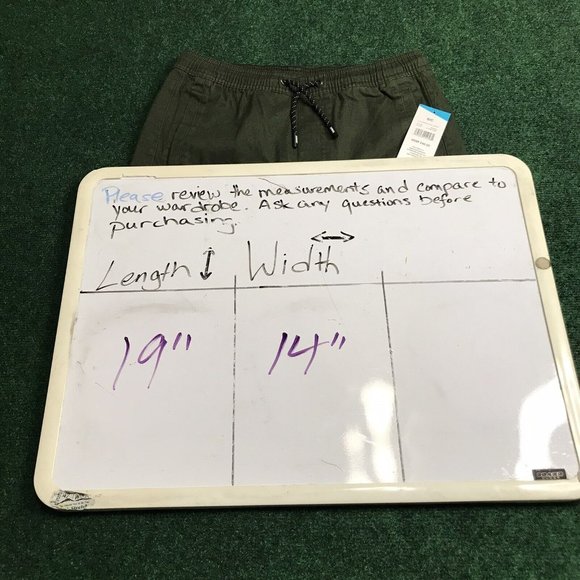 Please review the measurements and compare to
your wardrobe. Ask any questions before
purchasing.
Length ↕ Width ↔
19" 14"